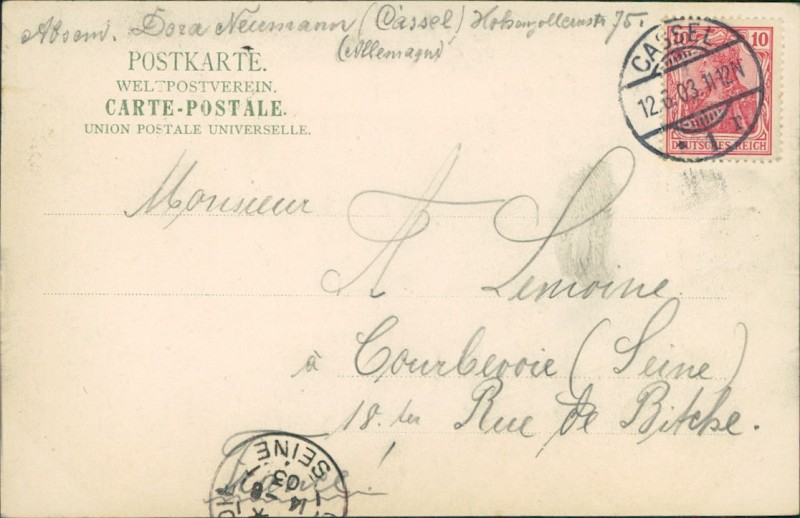 Absend. Dora Neumann (Cassel) Hohenzollernstr 75.
(Allemagne)
POSTKARTE.
WELTPOSTVEREIN.
CARTE-POSTALE.
UNION POSTALE UNIVERSELLE.
10
DEUTSCHES REICH
CASSEL
12.6.03.11-12V
* 1 r
Monsieur
A Lemoine
à Courbevoie (Seine)
18. ter Rue de Bitche.
SEINE
14 -6
03